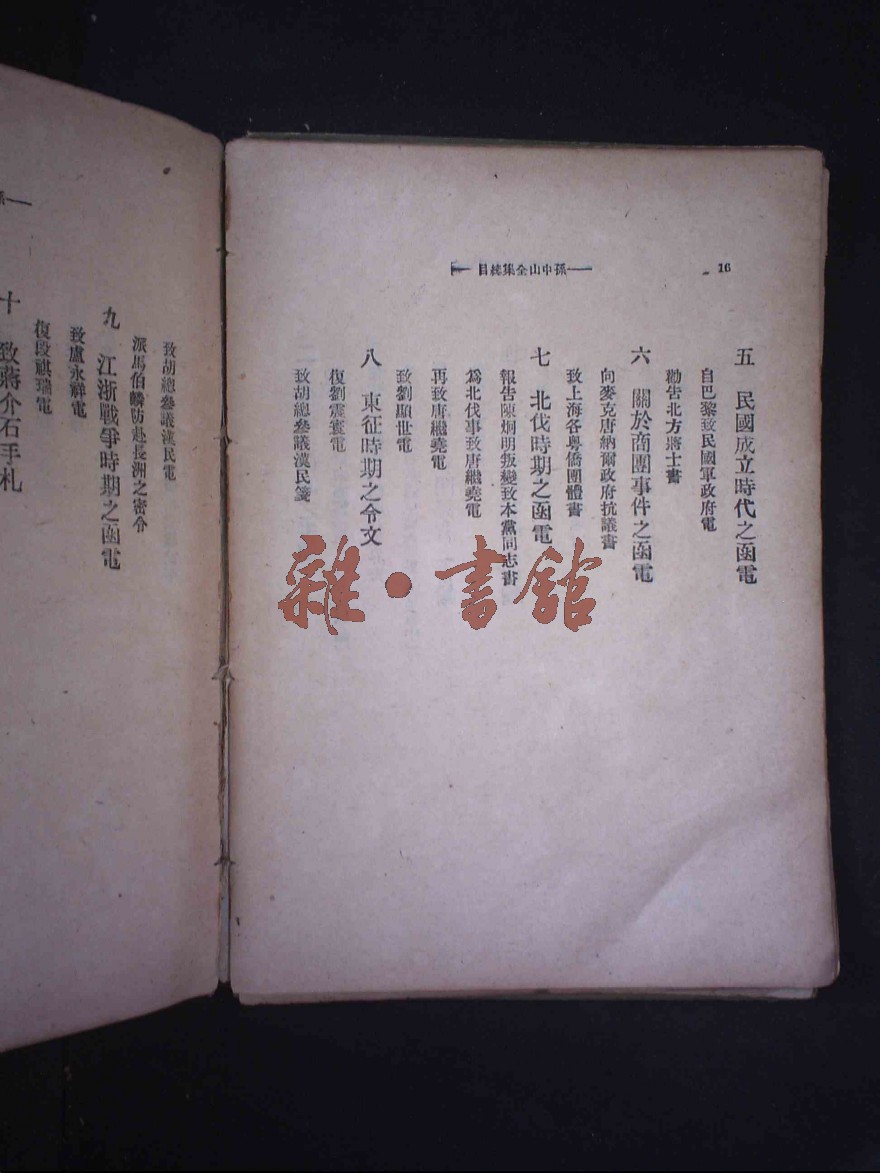 16
孫中山全集總目
五 民國成立時代之函電
自巴黎致民國軍政府電
勸告北方將士書
六 關於商團事件之函電
向麥克唐納爾政府抗議書
致上海各粵僑團體書
七 北伐時期之函電
報告陳炯明叛變致本黨同志書
爲北伐事致唐繼堯電
再致唐繼堯電
致劉顯世電
八 東征時期之令文
復劉震寰電
致胡總參議漢民箋
致胡總參議漢民電
派馬伯麟防赴長洲之密令
九 江浙戰爭時期之函電
致盧永祥電
復段祺瑞電
十 致蔣介石手札
雜·書館